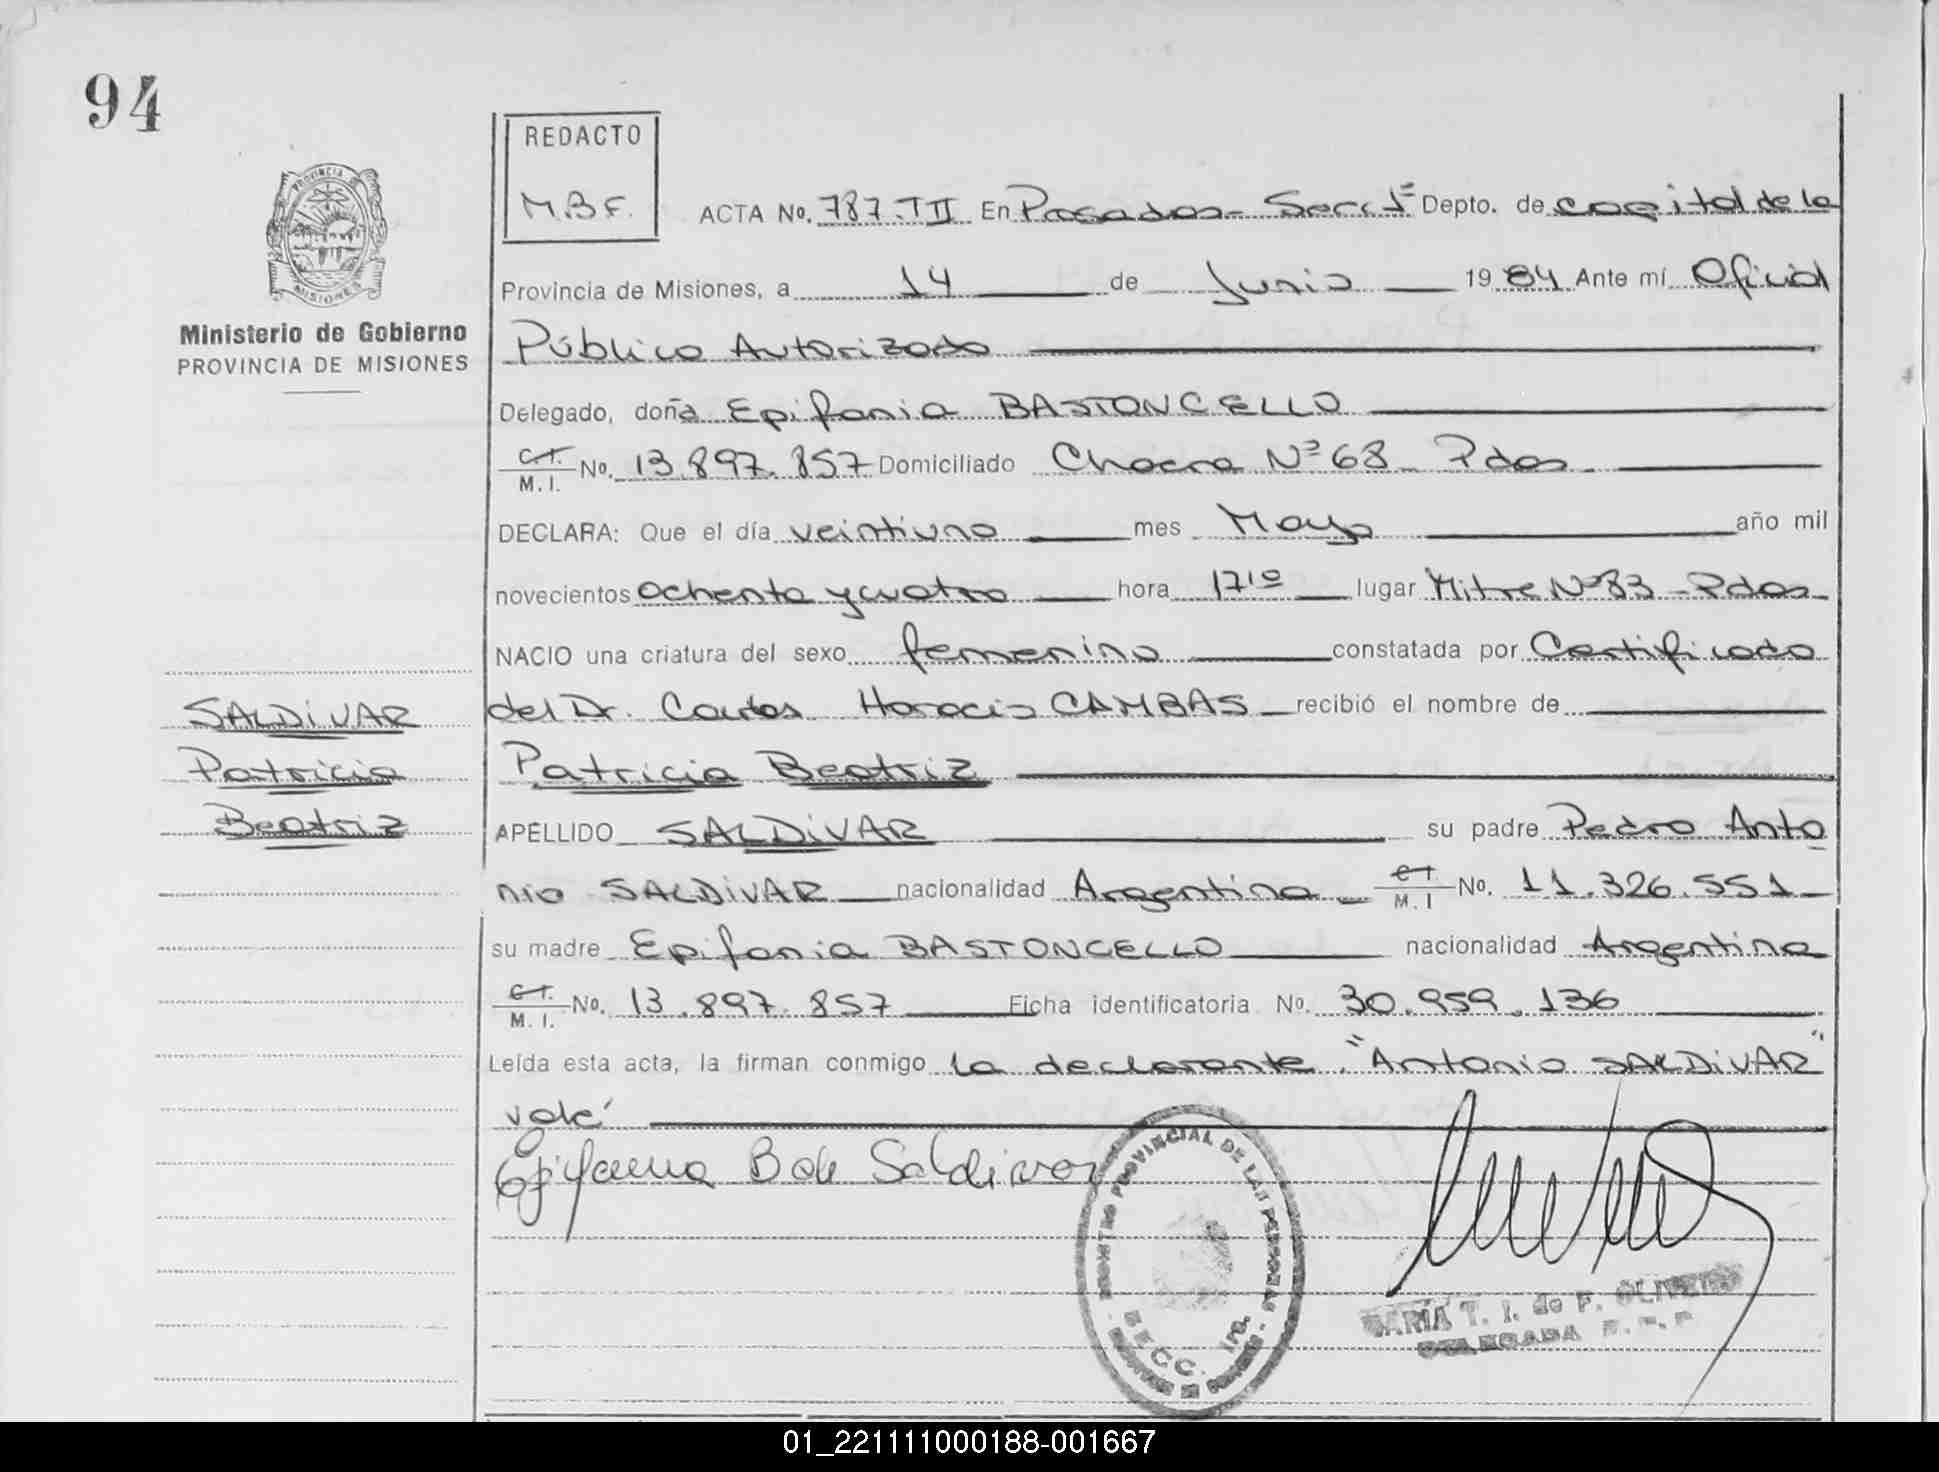 94
REDACTO
M.B.F.
ACTA No. 787.TII En Posadas - Secc 1ª Depto. de capital de la
PROVINCIA DE
MISIONES
Provincia de Misiones, a 14 de Junio 1984 Ante mí Oficial
Ministerio de Gobierno
PROVINCIA DE MISIONES
Público Autorizado
Delegado, doña Epifania BASTONCELLO
C.I. M.I. No. 13.897.857 Domiciliado Chacra Nº 68 Pdas
DECLARA: Que el día veintiuno mes Mayo año mil
novecientos ochenta y cuatro hora 17¹⁰ lugar Mitre Nº 83 - Pdas
NACIO una criatura del sexo femenino constatada por Certificado
SALDIVAR
del Dr. Carlos Horacio CAMBAS recibió el nombre de
Patricia
Patricia Beatriz
Beatriz
APELLIDO SALDIVAR su padre Pedro Anto
nio SALDIVAR nacionalidad Argentina C.I. M.I No. 11.326.551
su madre Epifania BASTONCELLO nacionalidad Argentina
C.I. M.I. No. 13.897.857 Ficha identificatoria No. 30.959.136
Leída esta acta, la firman conmigo la declarante. "Antonio SALDIVAR"
vale
Epifania B de Saldivar
REGISTRO PROVINCIAL DE LAS PERSONAS
SECC. 1ra.
MARIA T. I. de F. OLIVEIRO
DELEGADA
01_221111000188-001667